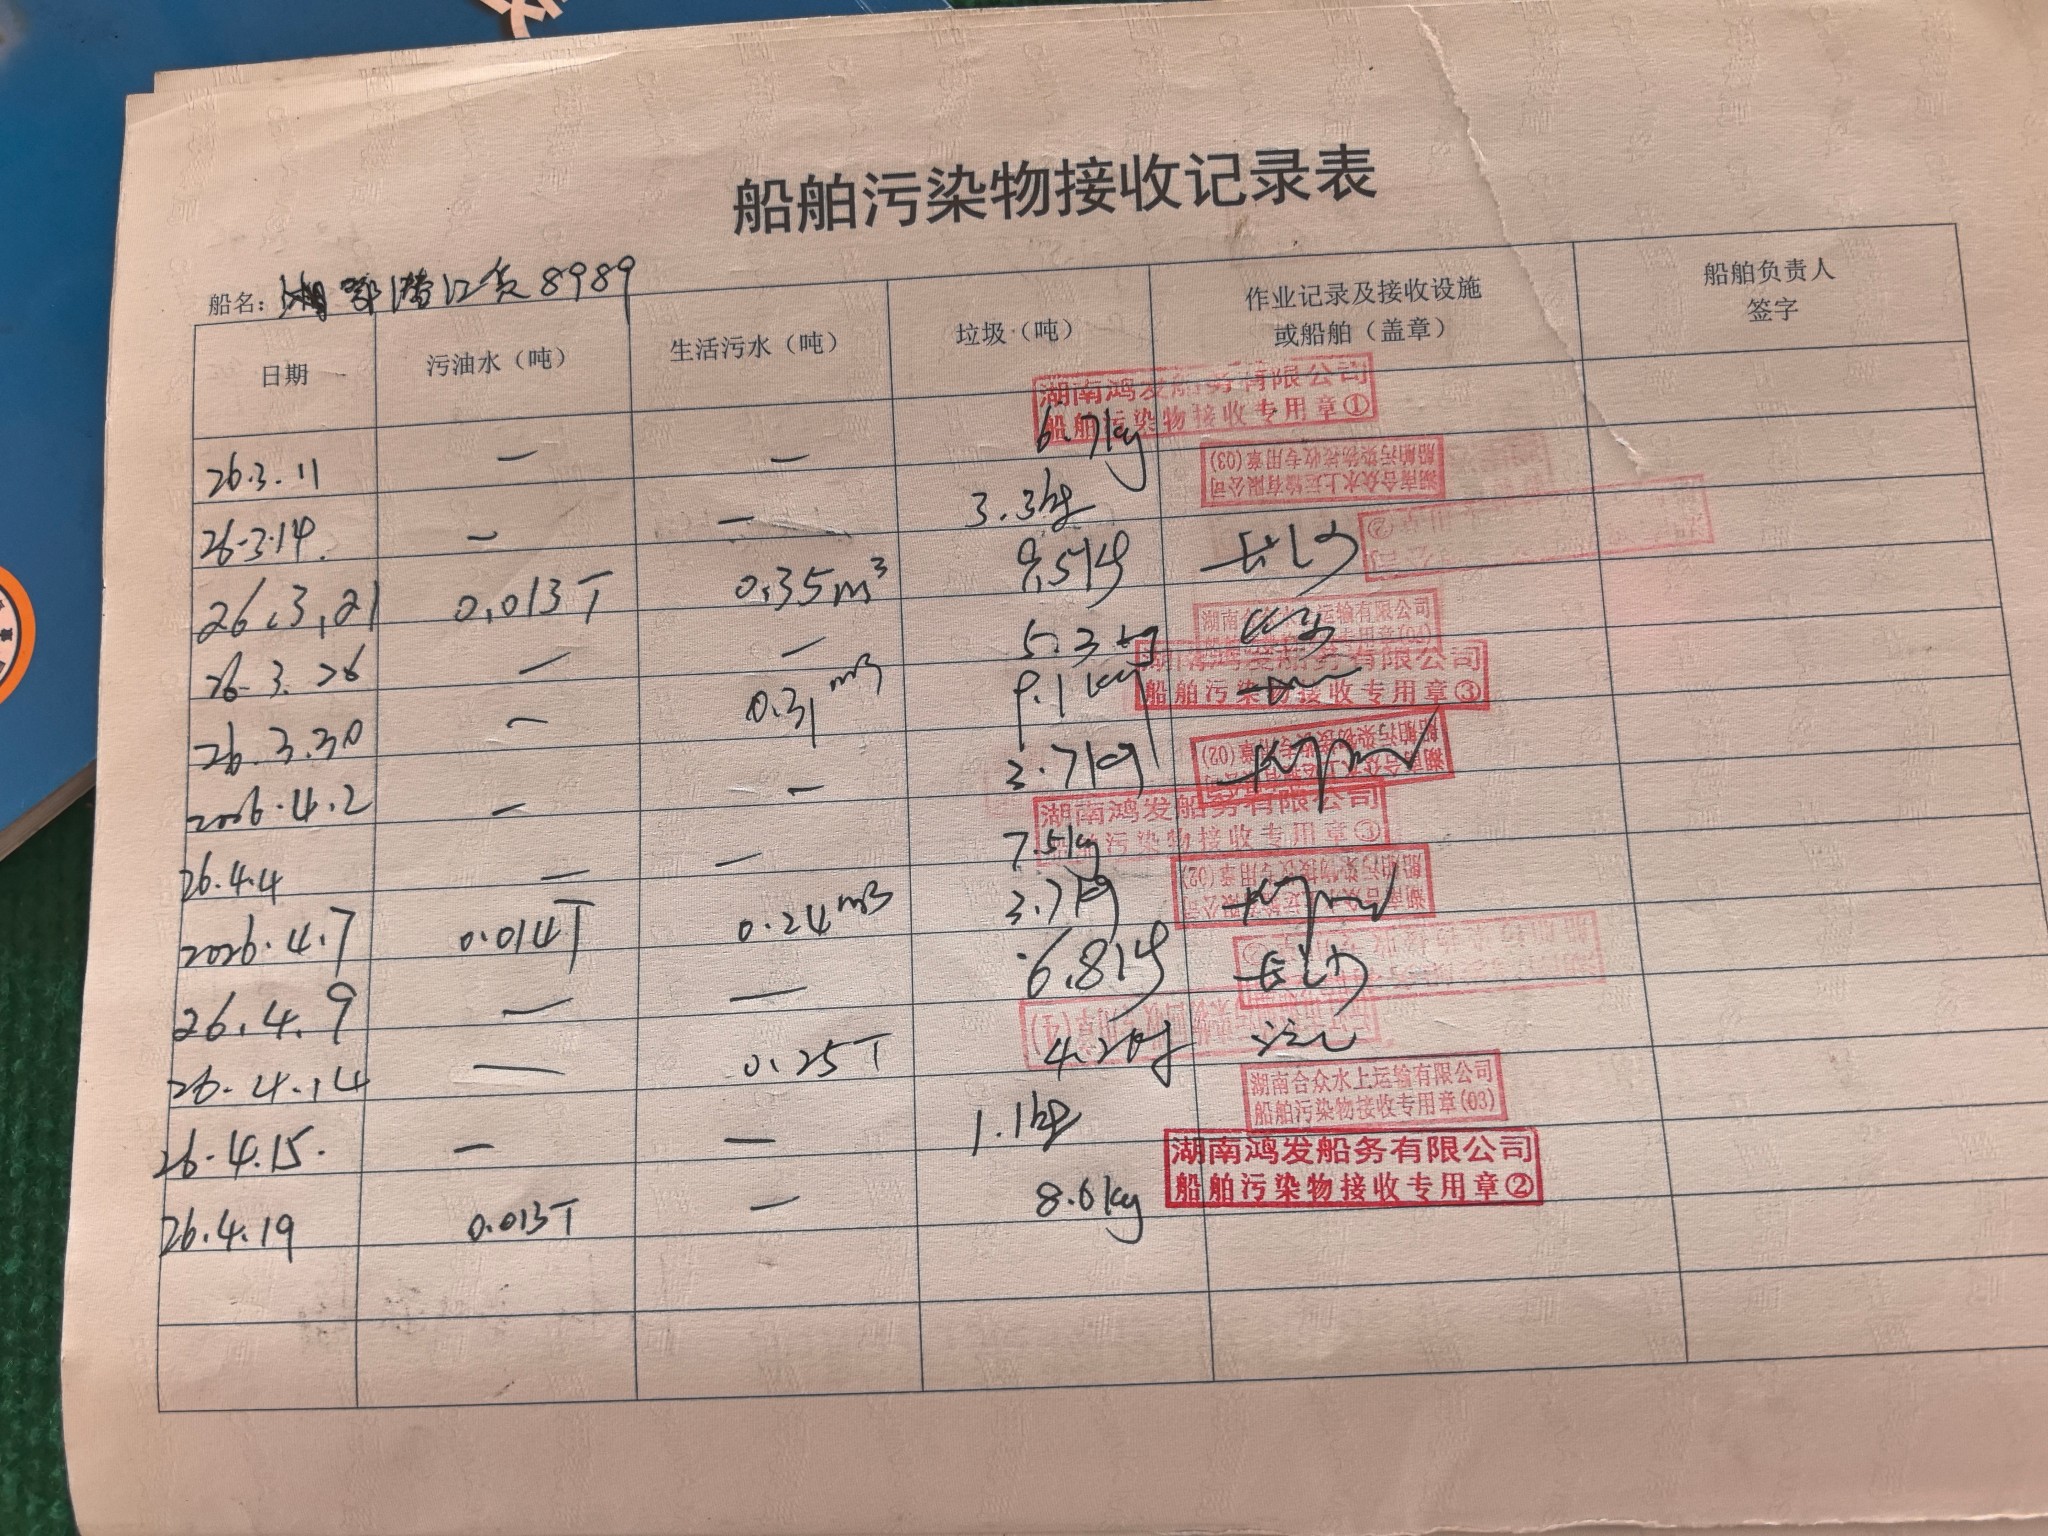 船舶污染物接收记录表
船名：湘鄂潜江货8989
日期 污油水（吨） 生活污水（吨） 垃圾（吨） 作业记录及接收设施或船舶（盖章） 船舶负责人签字
26.3.11 — — 6.7kg
湖南鸿发船务有限公司
船舶污染物接收专用章①
26.3.14. — — 3.3kg
湖南合众水上运输有限公司
船舶污染物接收专用章(03)
26.3.21 0.013T 0.35m³ 9.5kg 长沙
26.3.26 — — 5.3kg
湖南合众水上运输有限公司
26.3.30 — 0.31m³ 9.1kg
湖南鸿发船务有限公司
船舶污染物接收专用章③
2026.4.2 — — 3.7kg
船舶污染物接收专用章(02)
26.4.4 — — 7.5kg
湖南鸿发船务有限公司
船舶污染物接收专用章③
2026.4.7 0.014T 0.24m³ 3.7kg
船舶污染物接收专用章(02)
26.4.9 — — 6.8kg 长沙
26.4.14 — 0.25T 4.2kg
26.4.15. — — 1.1kg
湖南合众水上运输有限公司
船舶污染物接收专用章(03)
26.4.19 0.013T — 8.6kg
湖南鸿发船务有限公司
船舶污染物接收专用章②